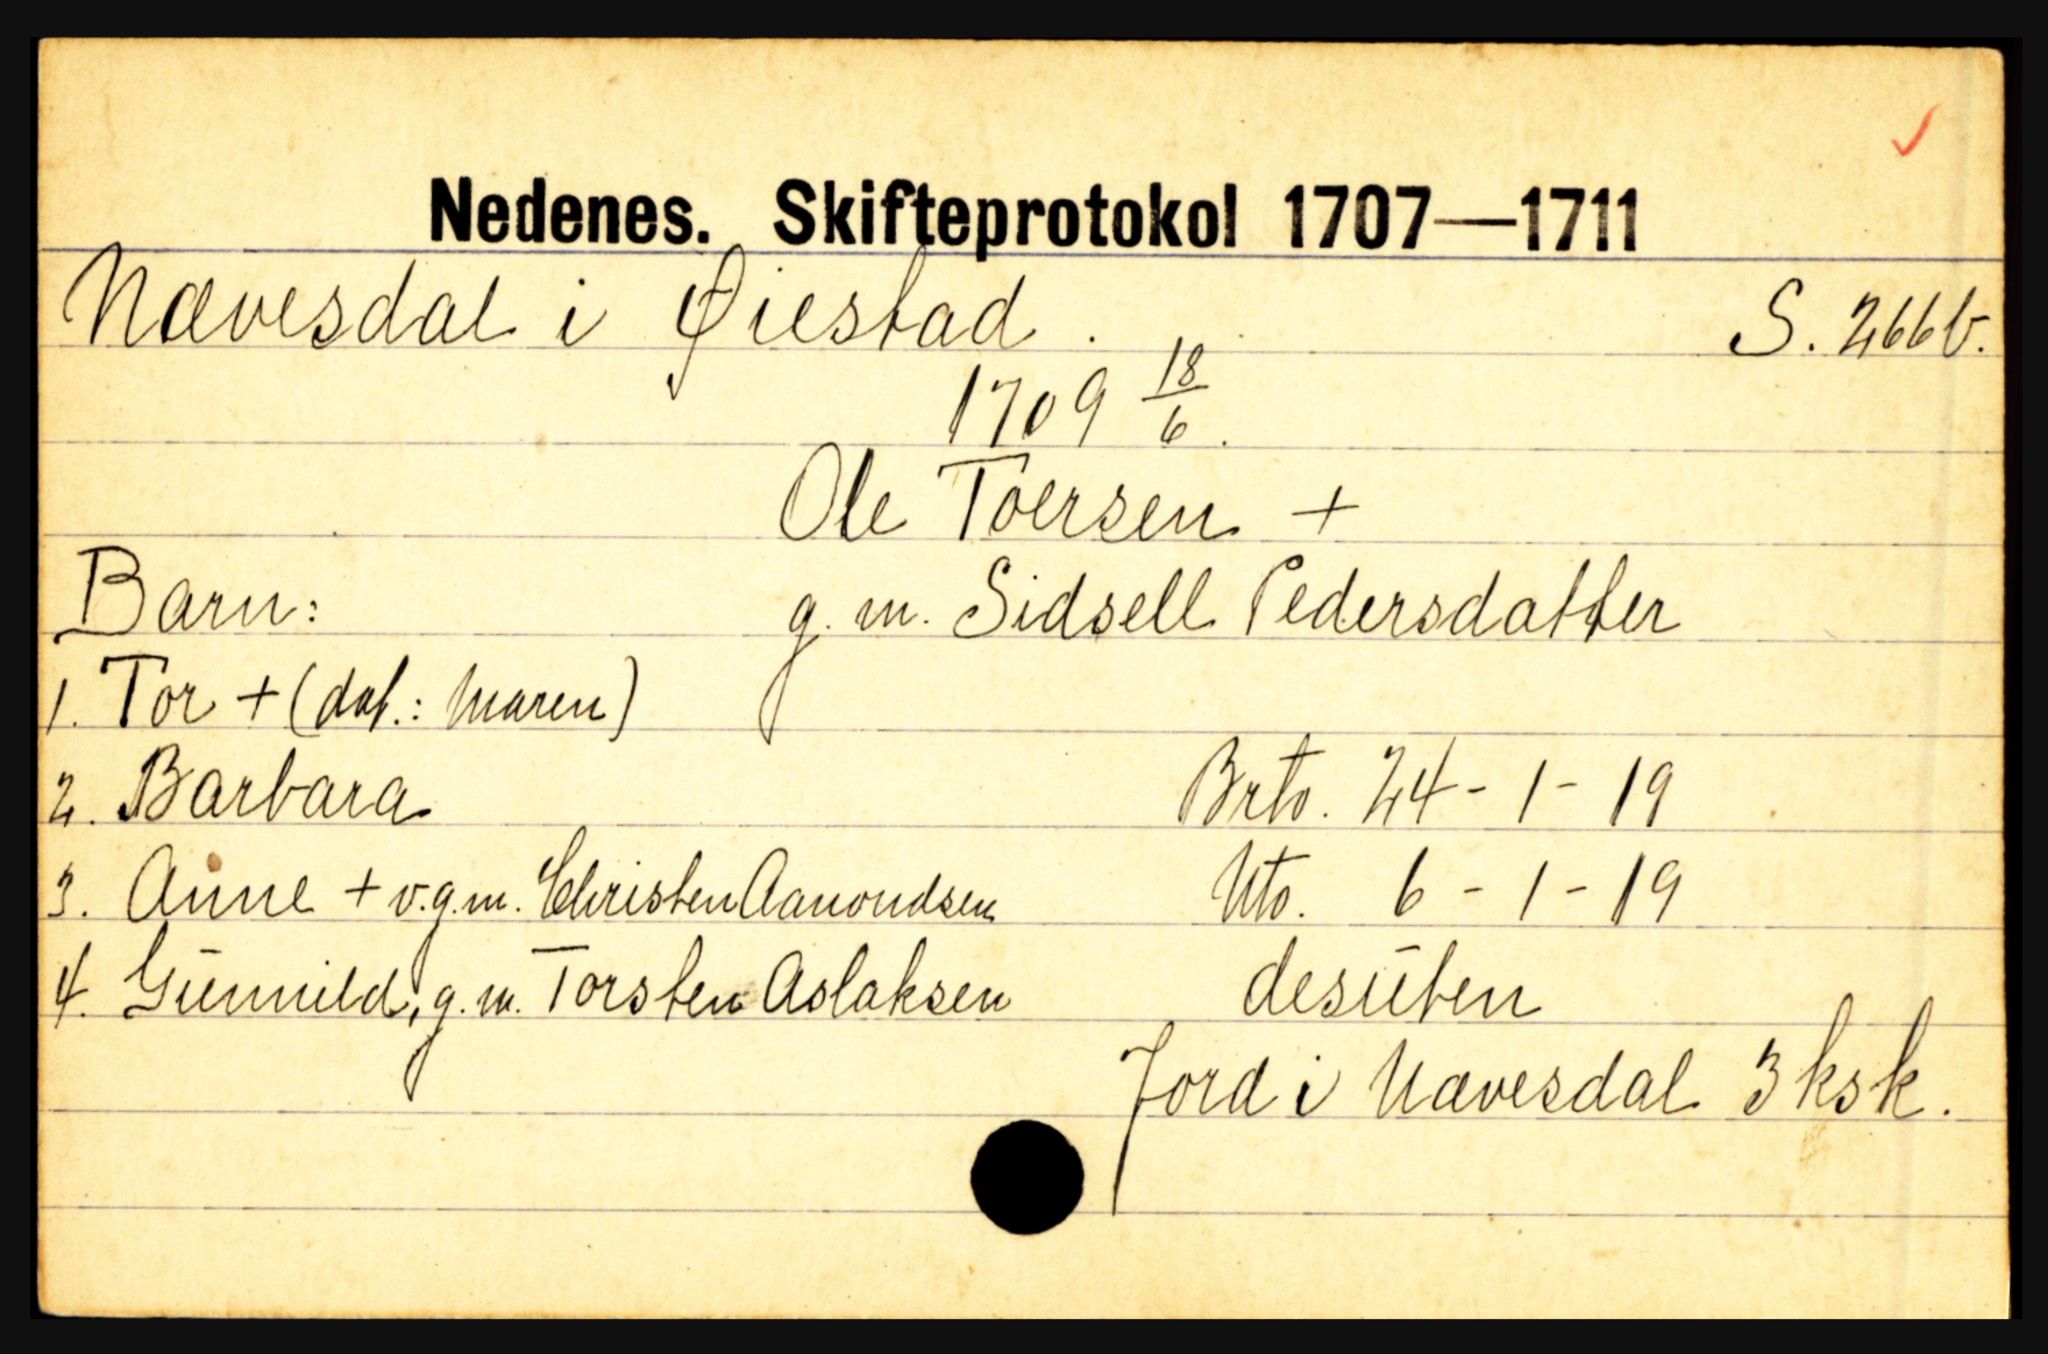 Nedenes. Skifteprotokol 1707—1711
Nævesdal i Øiestad. S. 266b.
1709 18/6.
Ole Toersen +
Barn: g. m. Sidsell Pedersdatter
1. Tor + (dat.: Maren)
2. Barbara Brto. 24 - 1 - 19
3. Anne + v.g.m. Christen Aamondsen Nto. 6 - 1 - 19
4. Gunnild, g.m. Torsten Aslaksen desuten
Jord i Nævesdal 3 ksk.